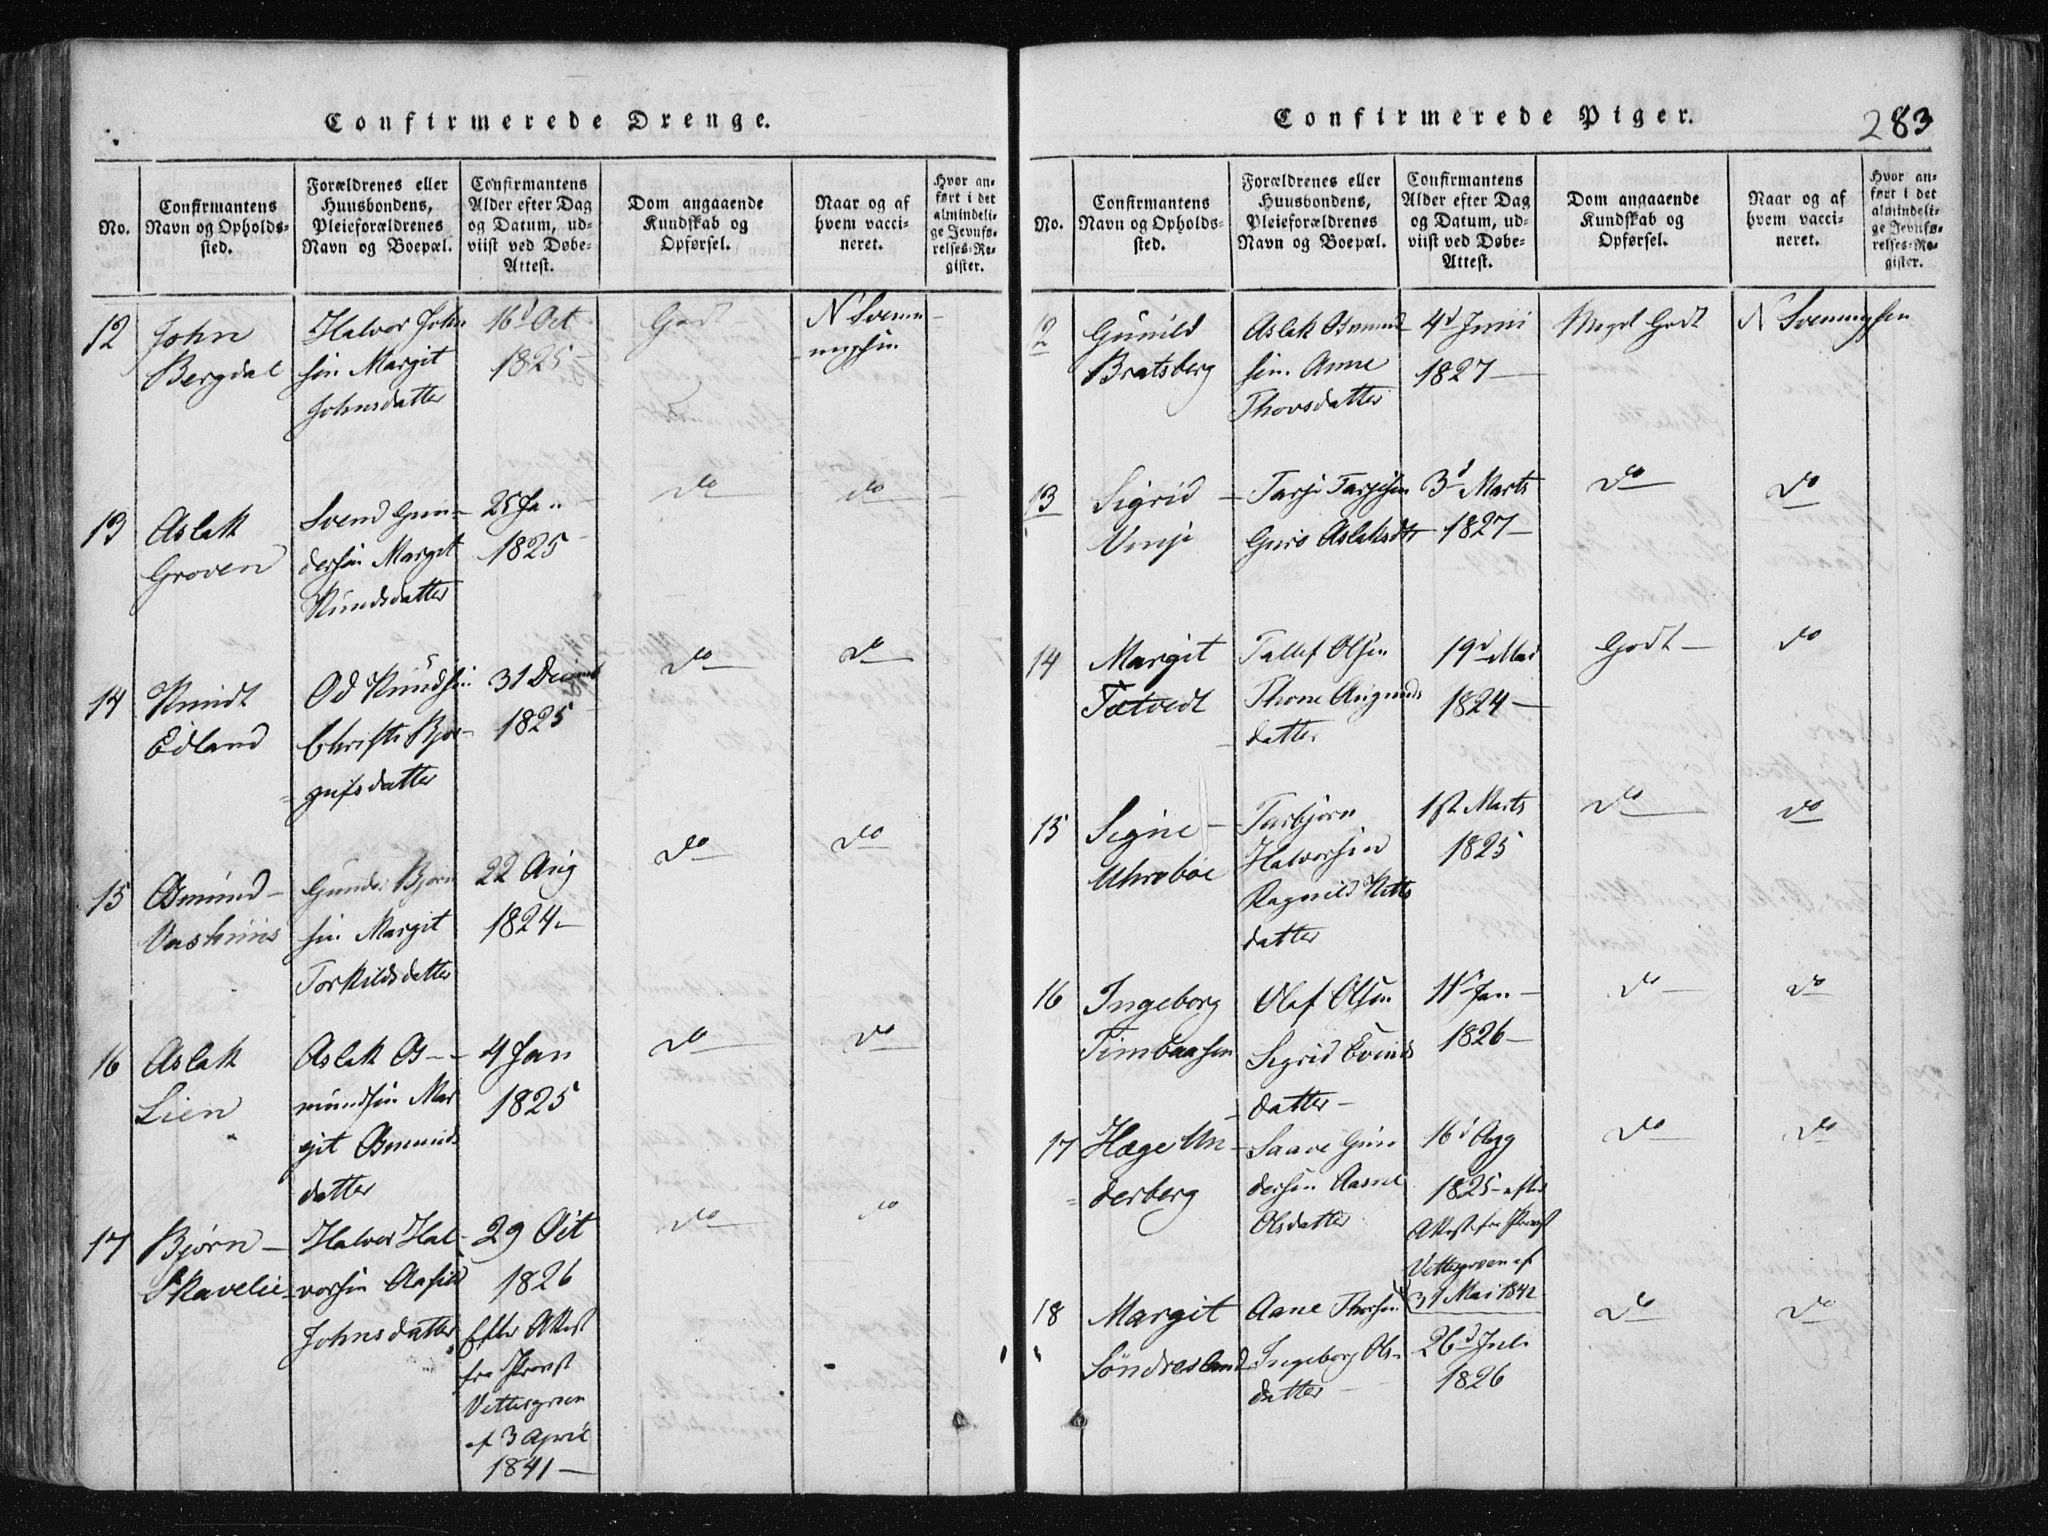 Confirmerede Drenge.
No.
Confirmantens
Navn og Opholds-
sted.
Forældrenes eller
Huusbondens,
Pleieforældrenes
Navn og Boepæl.
Confirmantens
Alder efter Dag
og Datum, ud-
viist ved Døbe-
Attest.
Dom angaaende
Kundskab og
Opførsel.
Naar og af
hvem vacci-
neret.
Hvor an-
ført i det
almindeli-
ge Jevnfø-
relses-Re-
gister.
12
John
Bergdal
Halvor John
sen Margit
Johnsdatter
16d Oct
1825 –
Godt
N Svenn
ingsen
13
Aslak
Groven
Svend Gun-
dersen Margit
Knudsdatter
25 Jan
1825 –
do
do
14
Knudt
Edland
Od Knudsen
Christi Bjor-
gufsdatter
31 Decemb
1825
do
do
15
Osmund –
Gunder Bjorn
sen Margit
Torkildsdatter
22 Aug
1824 –
do
do
16
Aslak
Lien
Aslak Os –
mundsen Mar
git Osmunds
datter
4 Jan
1825
do
do
17
Bjørn –
Skavelie
Halvor Hal-
vorsen Aasild
Johnsdatter
29 Oct
1826
Efter Attest
fra Provst
Vettergreen
af 3 April
1841 –
do
do
Confirmerede Piger.
283
No.
Confirmantens
Navn og Opholds-
sted.
Forældrenes eller
Huusbondens,
Pleieforældrenes
Navn og Boepæl.
Confirmantens
Alder efter Dag
og Datum, ud-
viist ved Døbe-
Attest.
Dom angaaende
Kundskab og
Opførsel.
Naar og af
hvem vacci-
neret.
Hvor an-
ført i det
almindeli-
ge Jevnfø-
relses-Re-
gister.
12
Gunild
Bratsberg
Aslak Osmund
sen. Anne
Thovsdatter
4d Juni
1827 –
Meget Godt
N Svenningsen
13
Sigrid
Vinje
Tarje Tarjesen
Guro Aslaksdtr
3d Marts
1827 –
do
do
14
Margit
Tatvedt
Tallef Olsen
Thone Augunds
datter
19d Mai
1824 –
Godt –
do
15
Signe –
Uhrobøe
Tarbjørn
Halvorsen
Ragnild Kittils
datter
1st Marts
1825
do
do
16
Ingeborg
Olaf Olsen
Sigrid Evinds
datter –
11d Jan –
1826 –
do
do
17
Hæge Un
derberg
Saave Gun
dersen Aasne
Olsdatter
16d Aug
1825 – efter
Attest fra Provst
Vettergreen af
31 Mai 1842
do
do
18
Margit
Søndresland
Aane Thorsen
Ingeborg Ols-
datter –
26d Juli
1826
do
do